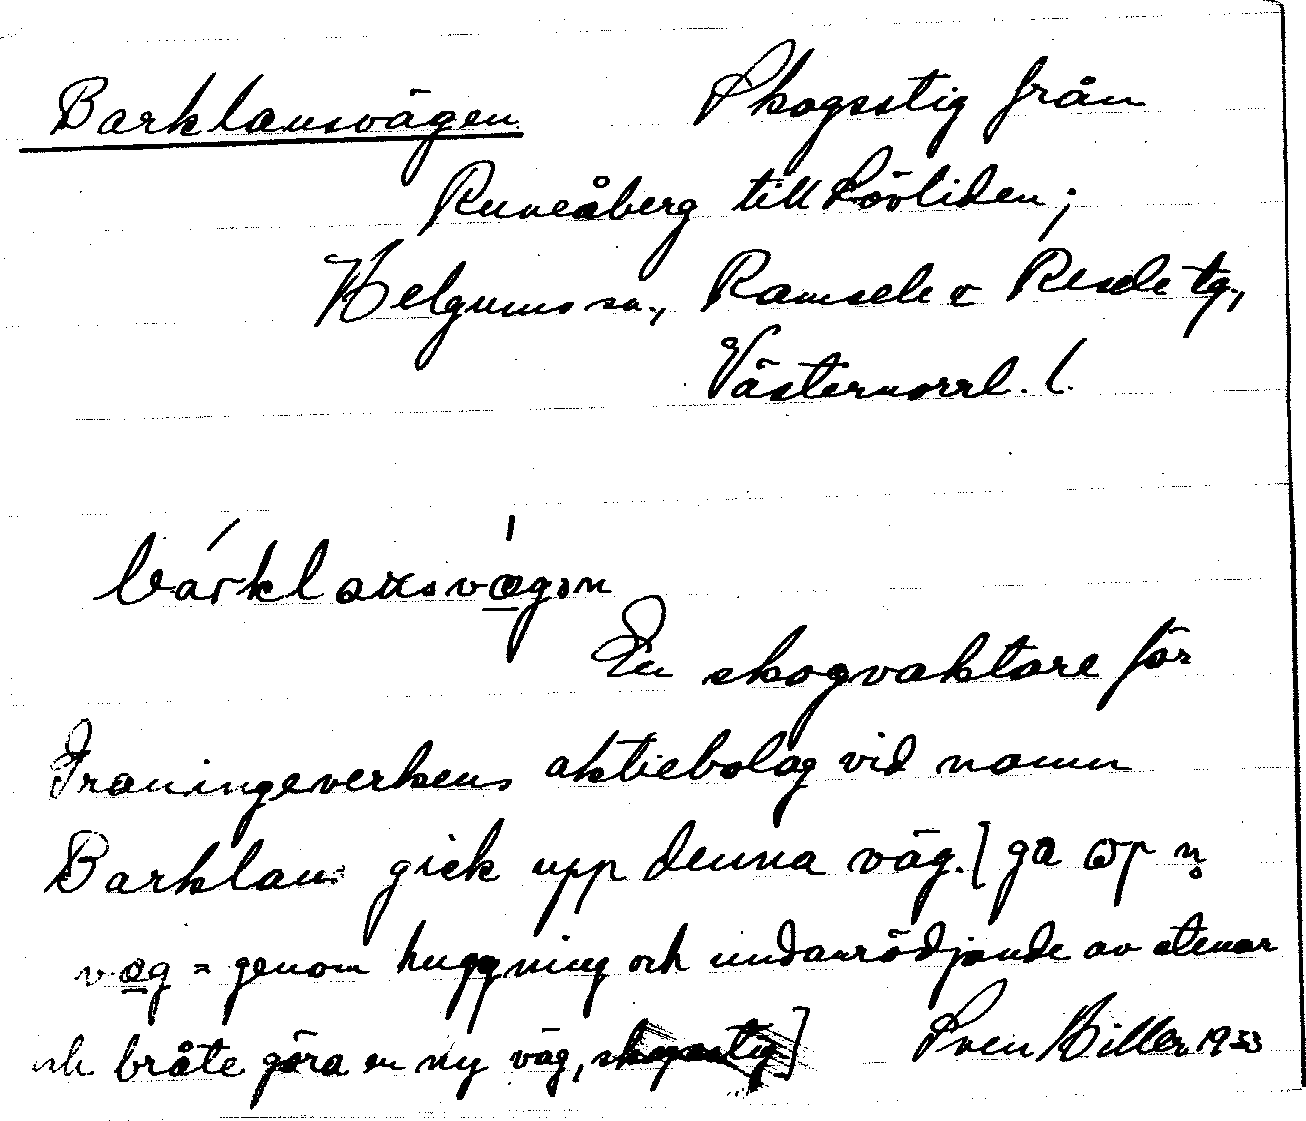 Barklansvägen Skogsstig från
Runeåberg till Lövliden;
Helgums sn., Ramsele o Resele tg.,
Västernorrl. l.
En skogvaktare för
Graningeverkens aktiebolag vid namn
Barklan gick upp denna väg. [ga
væg = genom huggning och undanrödjande av stenar
och bråte göra en ny väg, skogsstig] Sven Biller 1933